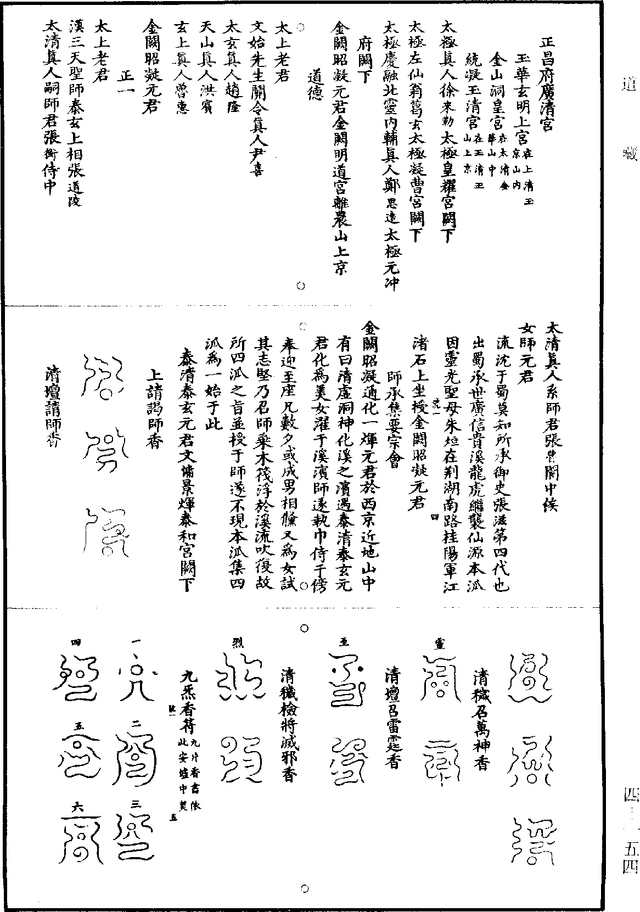 道藏
正昌府廣清宮
玉華玄明上宮在上清玉京山內
金山洞皇宮在太清金華山中
統凝玉清宮在玉清玉山上京
太極真人徐来勒太極皇耀宮闕下
太極左仙翁葛玄太極凝曹宮闕下
太極慶融北靈内輔真人鄭思遠太極元冲
府闕下
金闕昭凝元君金闕明道宮離農山上京
道德
太上老君
文始先生關令真人尹喜
太玄真人趙隆
天山真人洪賓
玄上真人曾惠
金闕昭凝元君
正一
太上老君
漢三天聖師泰玄上相張道陵
太清真人嗣師君張衡侍中
太清真人系師君張魯閬中候
女師元君
流沈于蜀莫知所承御史張滋第四代也
出蜀承世廣信貴溪龍虎繼襲仙源本派
因靈光聖母朱烜在荆湖南路桂陽軍江
渚石上坐授金闕昭凝元君
師承集要宗會
金闕昭凝通化一煇元君於西京近地山中
有曰清虛洞神化溪之濱遇泰清泰玄元
君化為美女濯于溪濱師遂執巾侍于傍
奉迎至座凡數夕或成男相儵又為女試
其志堅乃召師乘木筏浮於溪流吹復故
所四派之旨並授于師遂不現本派集四
派為一始于此
泰清泰玄元君文傋景煇泰和宮闕下
上請謁師香
清壇請師香
清穢召萬神香
靈
清壇召雷霆香
至
清穢檢將滅邪香
烈
九炁香符九片香書依此安爐中焚
一
二
三
四
五
六
四—一五四